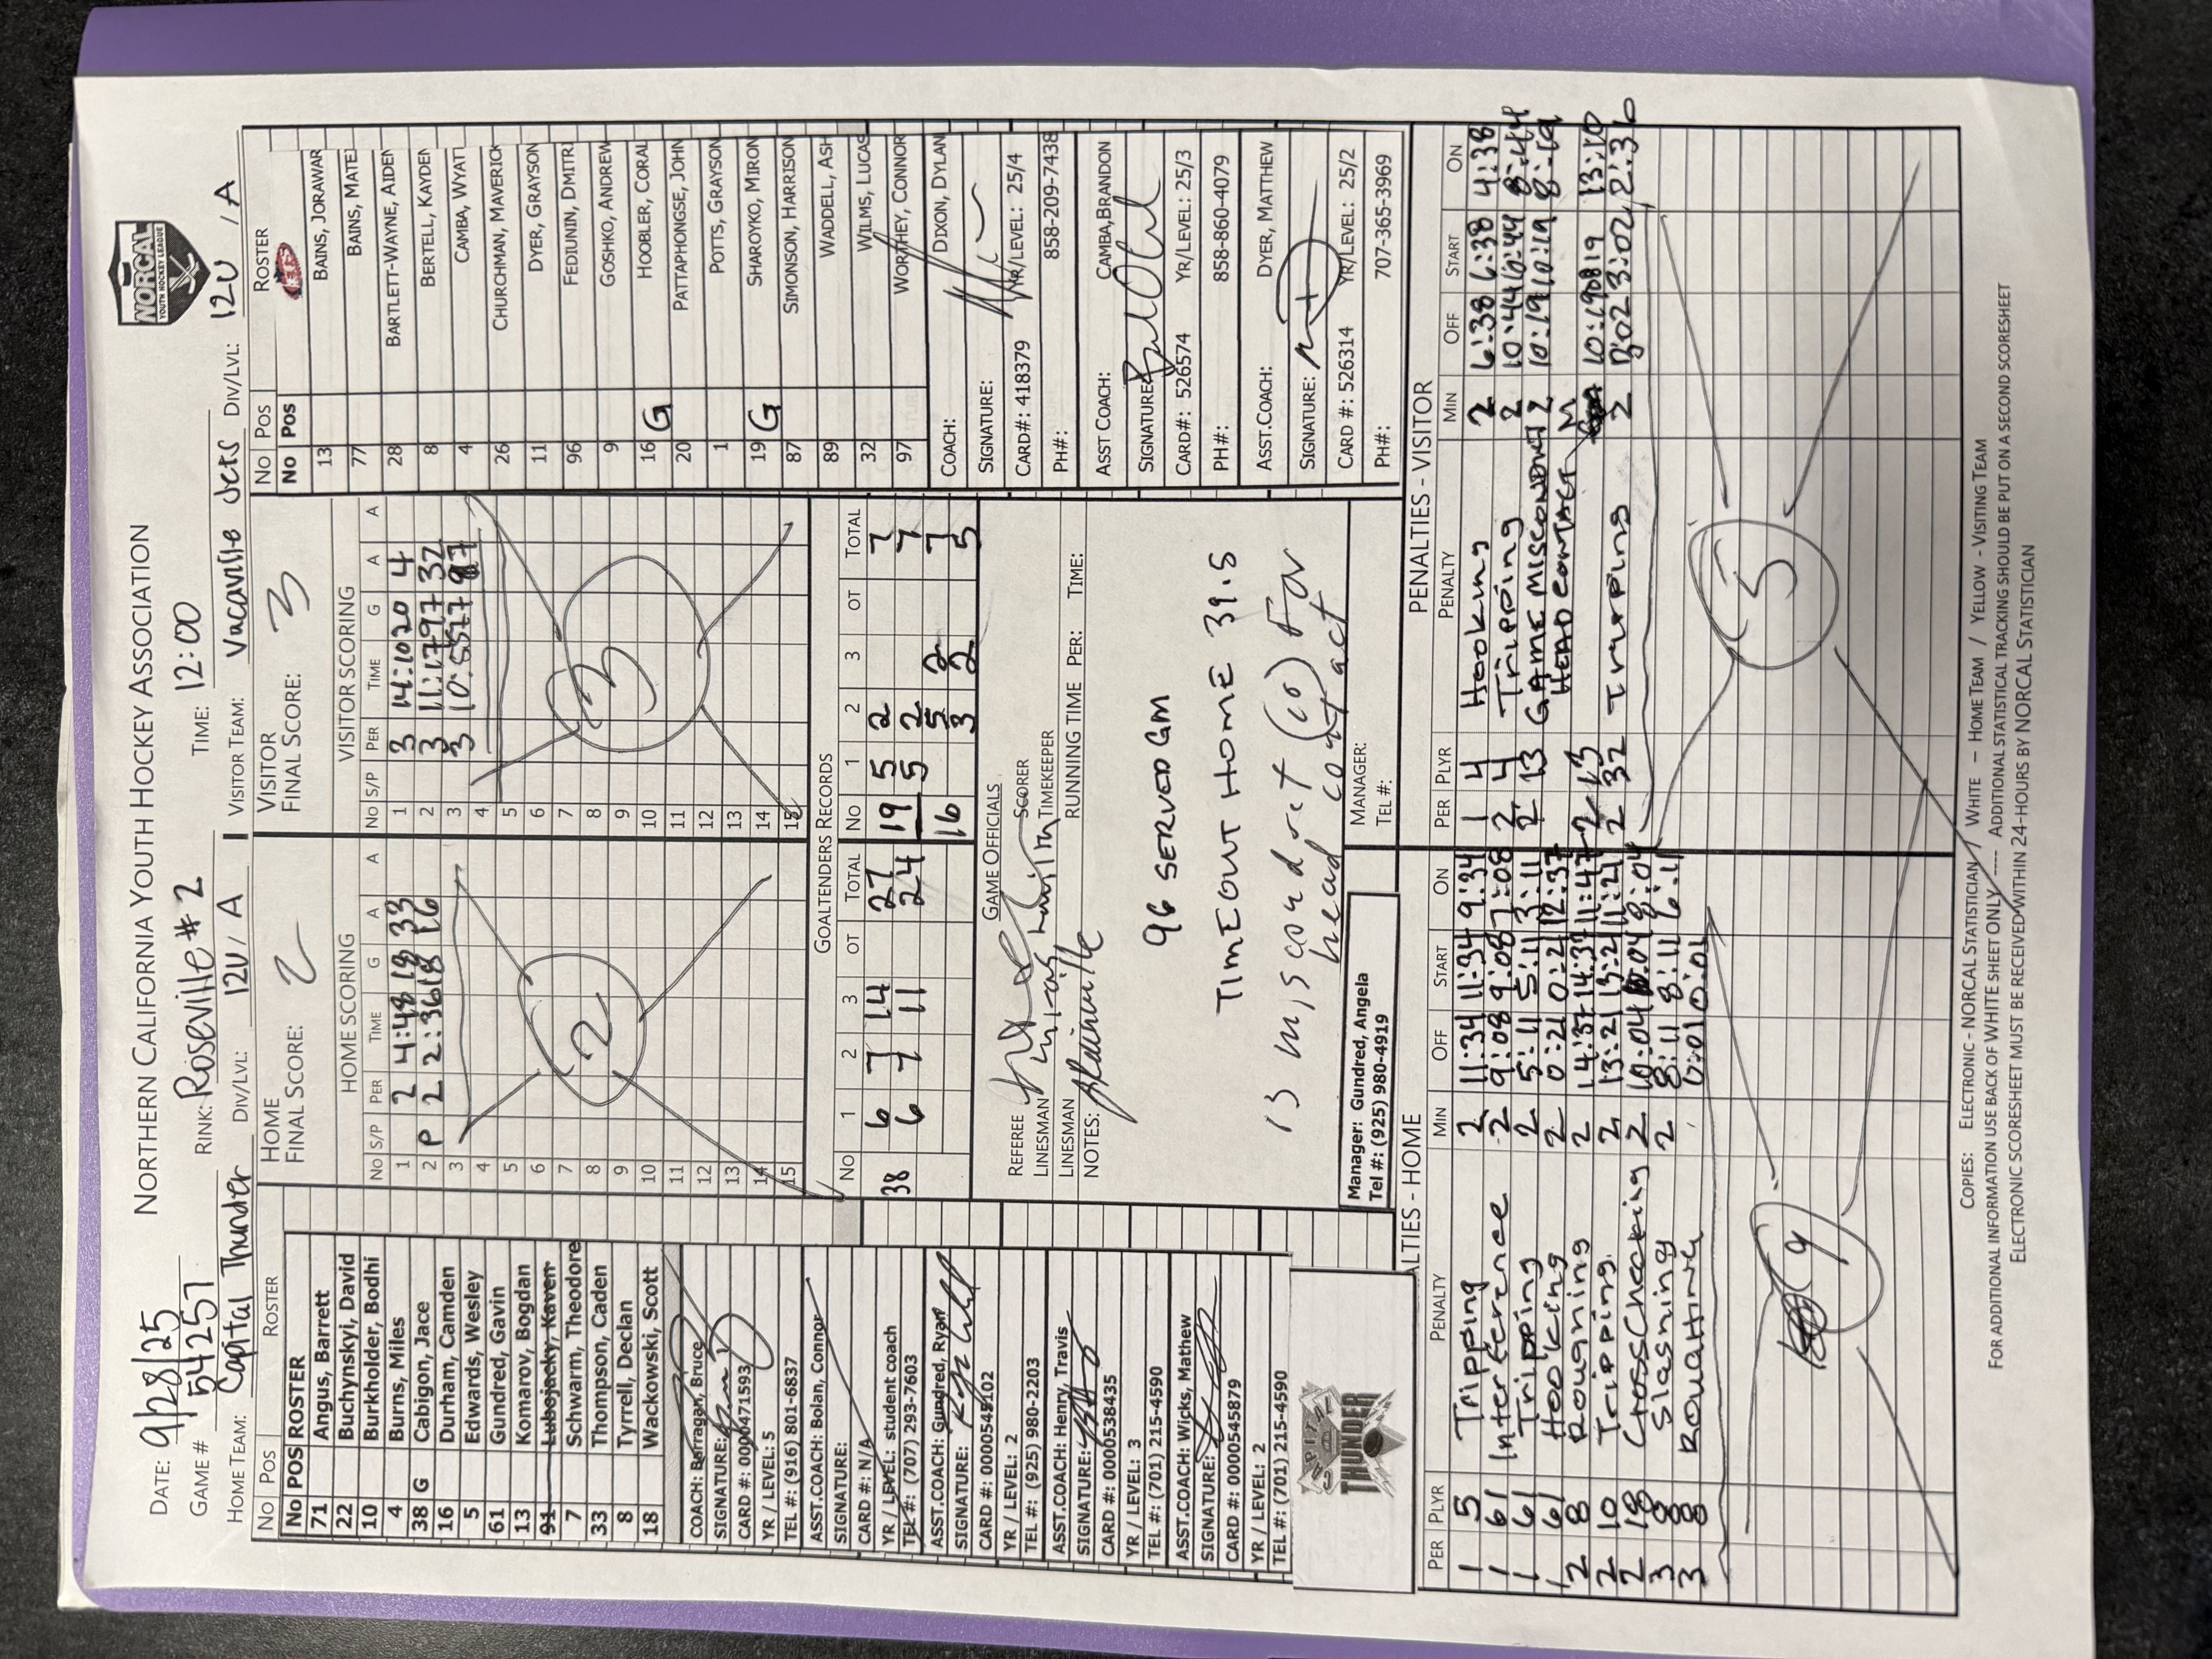 NORTHERN CALIFORNIA YOUTH HOCKEY ASSOCIATION
NORCAL
YOUTH HOCKEY LEAGUE
DATE: 9/28/25
GAME # 54257 RINK: Roseville #2 TIME: 12:00
HOME TEAM: Capital Thunder DIV/LVL: 12U / A VISITOR TEAM: Vacaville Jets DIV/LVL: 12U / A
No Pos ROSTER
No POS ROSTER
71 Angus, Barrett
22 Buchynskyi, David
10 Burkholder, Bodhi
4 Burns, Miles
38 G Cabigon, Jace
16 Durham, Camden
5 Edwards, Wesley
61 Gundred, Gavin
13 Komarov, Bogdan
91 Lubojacky, Kaven
7 Schwarm, Theodore
33 Thompson, Caden
8 Tyrrell, Declan
18 Wackowski, Scott
COACH: Barragan, Bruce
SIGNATURE:
CARD #: 0000471593
YR / LEVEL: 5
TEL #: (916) 801-6837
ASST.COACH: Bolan, Connor
SIGNATURE:
CARD #: N/A
YR / LEVEL: student coach
TEL #: (707) 293-7603
ASST.COACH: Gundred, Ryan
SIGNATURE:
CARD #: 0000545102
YR / LEVEL: 2
TEL #: (925) 980-2203
ASST.COACH: Henry, Travis
SIGNATURE:
CARD #: 0000538435
YR / LEVEL: 3
TEL #: (701) 215-4590
ASST.COACH: Wicks, Mathew
SIGNATURE:
CARD #: 0000545879
YR / LEVEL: 2
TEL #: (701) 215-4590
CAPITAL
THUNDER
HOME
FINAL SCORE: 2
HOME SCORING
No S/P PER TIME G A A
1 2 4:48 18 33
2 P 2 2:36 18 16
3
4
5
6
7
8
9
10
11
12
13
14
15
2
VISITOR
FINAL SCORE: 3
VISITOR SCORING
No S/P PER TIME G A A
1 3 14:10 20 4
2 3 11:17 97 32
3 3 10:55 77 87
4
5
6
7
8
9
10
11
12
13
14
15
3
GOALTENDERS RECORDS
No 1 2 3 OT TOTAL No 1 2 3 OT TOTAL
38 6 7 14 27 19 5 2 7
6 7 11 24 5 2 7
16 5 2 7
3 2 5
GAME OFFICIALS
REFEREE SCORER
LINESMAN TIMEKEEPER
LINESMAN RUNNING TIME PER: TIME:
NOTES:
96 SERVED GM
TIMEOUT HOME 39.5
13 misconduct (10) For
head contact
Manager: Gundred, Angela
Tel #: (925) 980-4919
MANAGER:
TEL #:
No Pos ROSTER
JETS
No Pos
13 BAINS, JORAWAR
77 BAINS, MATE
28 BARTLETT-WAYNE, AIDEN
8 BERTELL, KAYDEN
4 CAMBA, WYATT
26 CHURCHMAN, MAVERICK
11 DYER, GRAYSON
96 FEDIUNIN, DMITRI
9 GOSHKO, ANDREW
16 G HOOBLER, CORAL
20 PATTAPHONGSE, JOHN
1 POTTS, GRAYSON
19 G SHAROYKO, MIRON
87 SIMONSON, HARRISON
89 WADDELL, ASH
32 WILMS, LUCAS
97 WORTHEY, CONNOR
COACH: DIXON, DYLAN
SIGNATURE:
CARD#: 418379 YR/LEVEL: 25/4
PH#: 858-209-7438
ASST COACH: CAMBA,BRANDON
SIGNATURE:
CARD#: 526574 YR/LEVEL: 25/3
PH#: 858-860-4079
ASST.COACH: DYER, MATTHEW
SIGNATURE:
CARD #: 526314 YR/LEVEL: 25/2
PH#: 707-365-3969
ALTIES - HOME
PER PLYR PENALTY MIN OFF START ON
1 5 Tripping 2 11:34 11:34 9:34
1 61 Interference 2 9:08 9:08 7:08
1 61 Tripping 2 5:11 5:11 3:11
1 61 Hooking 2 0:21 0:21 12:37
2 8 Roughing 2 14:37 14:37 11:47
2 10 Tripping 2 13:21 13:21 11:21
2 18 Cross Checking 2 10:04 10:04 8:04
3 8 Slashing 2 8:11 8:11 6:11
3 8 Roughing 0:01 0:01
9
PENALTIES - VISITOR
PER PLYR PENALTY MIN OFF START ON
1 4 Hooking 2 6:38 6:38 4:38
2 4 Tripping 2 10:44 10:44 8:44
2 13 GAME MISCONDUCT 2 10:19 10:19 8:19
2 13 HEAD CONTACT M 10:19 0819 13:10
2 32 Tripping 2 3:02 3:02 2:36
5
COPIES: ELECTRONIC - NORCAL STATISTICIAN / WHITE – HOME TEAM / YELLOW - VISITING TEAM
FOR ADDITIONAL INFORMATION USE BACK OF WHITE SHEET ONLY ---- ADDITIONAL STATISTICAL TRACKING SHOULD BE PUT ON A SECOND SCORESHEET
ELECTRONIC SCORESHEET MUST BE RECEIVED WITHIN 24-HOURS BY NORCAL STATISTICIAN